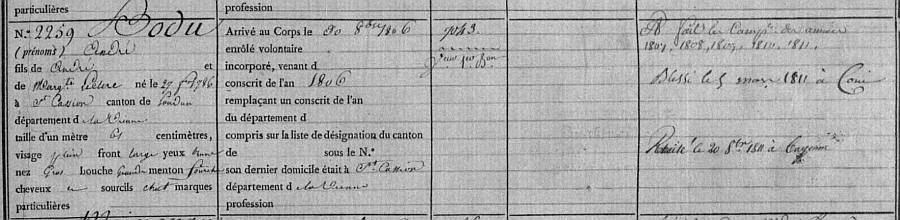 particulières
profession
N.° 2259 Bodu
(prénoms) André
fils de André et
de Marg.te né le 27 1786
à St Cassien canton de Loudun
département d la Vienne
taille d'un mètre centimètres,
visage plein front large yeux
nez Gros bouche Grande menton fourchu
cheveux sourcils chat marques
particulières
Arrivé au Corps le 20 8bre 1806
enrôlé volontaire
incorporé, venant d
conscrit de l'an 1806
remplaçant un conscrit de l'an
du département d
compris sur la liste de désignation du canton
de sous le N.°
son dernier domicile était à St Cassien
département d la Vienne
profession
fait les Camp.es des années
1807, 1808, 1809, 1810, 1811.
Blessé le 5 mars 1811 à
le 20 8bre 1811 à